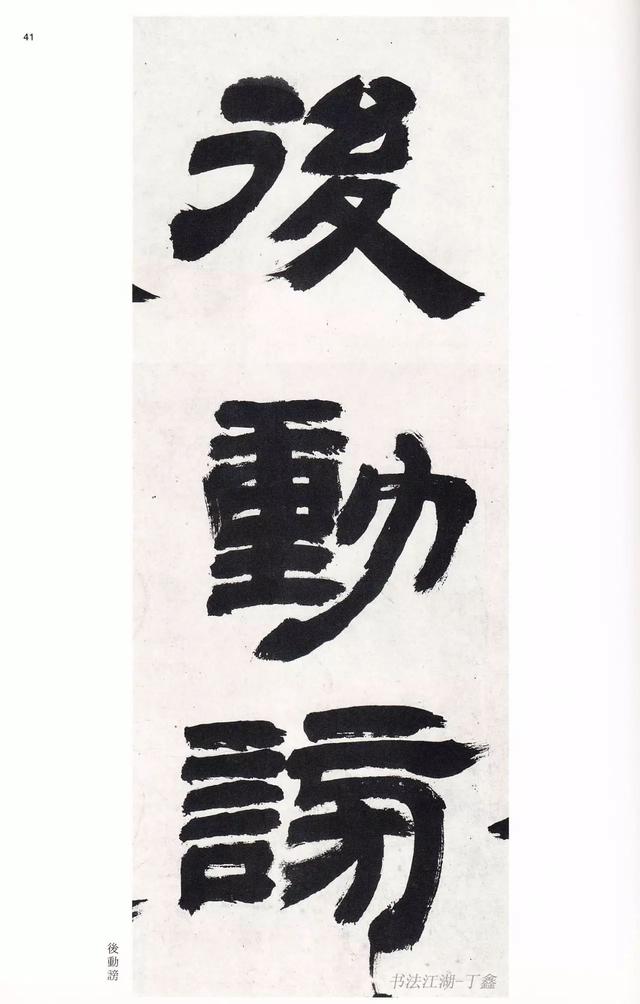 41
後
動
謗
後動謗
书法江湖-丁鑫